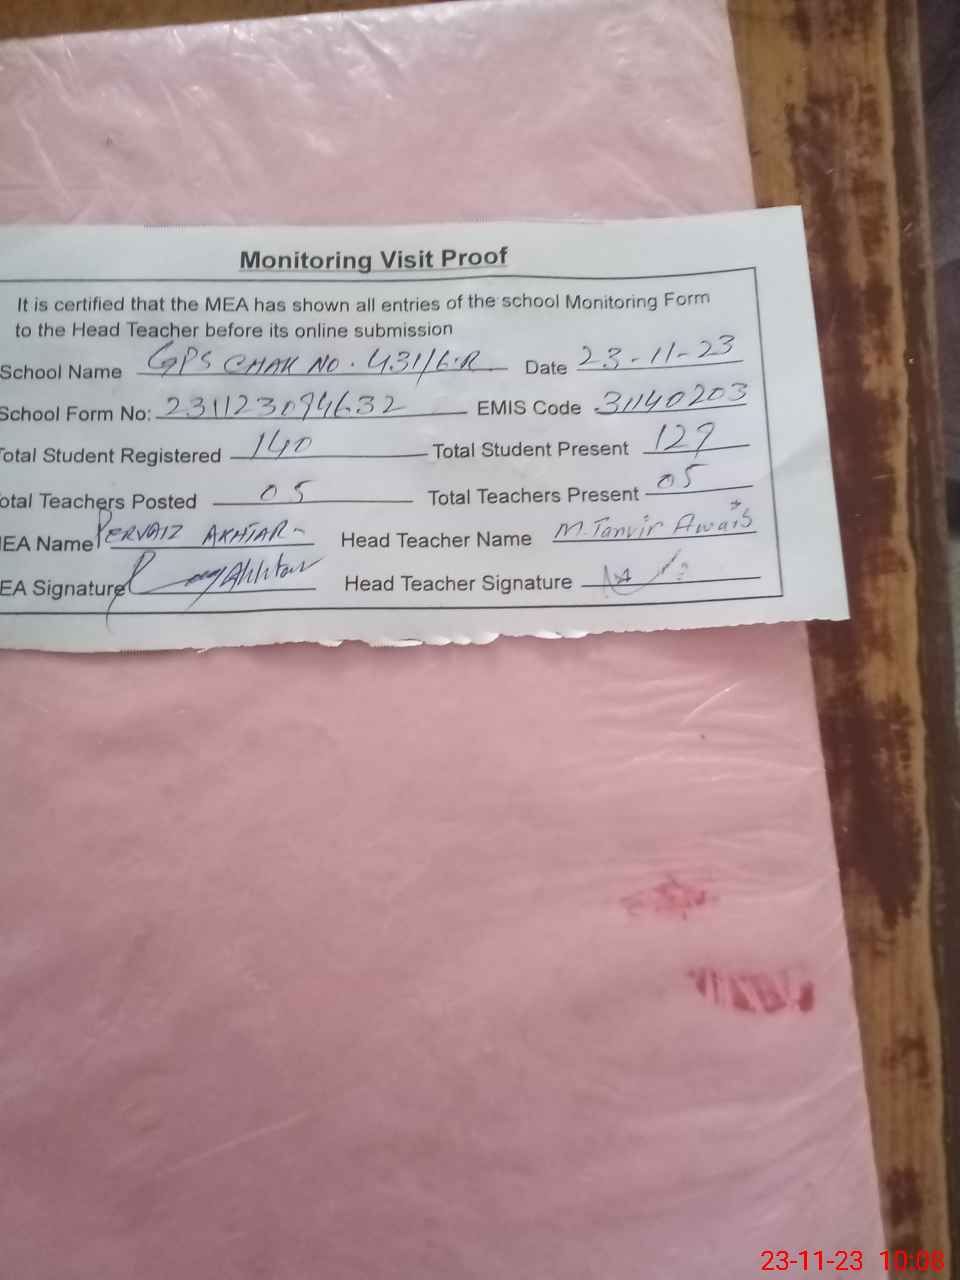 Monitoring Visit Proof
It is certified that the MEA has shown all entries of the school Monitoring Form
to the Head Teacher before its online submission
School Name GPS CHAK NO. 431/6.R Date 23-11-23
School Form No: 231123094632 EMIS Code 31140203
otal Student Registered 140 Total Student Present 129
otal Teachers Posted 05 Total Teachers Present 05
EA Name PERVAIZ AKHTAR Head Teacher Name M. Tanvir Awais
EA Signature Head Teacher Signature
23-11-23 10:08